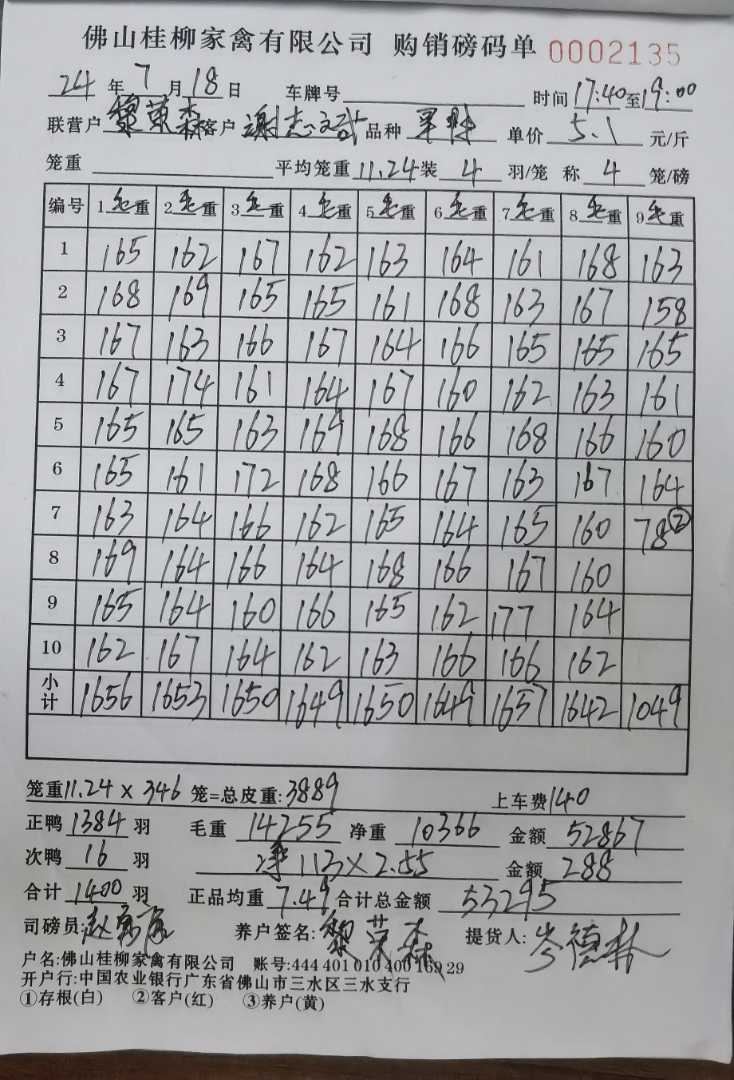 佛山桂柳家禽有限公司 购销磅码单 0002135
24 年 7 月 18 日 车牌号 时间 17:40 至 19:00
联营户 黎荣森 客户 谢志 品种 单价 5.1 元/斤
笼重 平均笼重 11.24 装 4 羽/笼 称 4 笼/磅
编号 1毛重 2毛重 3毛重 4毛重 5毛重 6毛重 7毛重 8毛重 9毛重
1 165 162 167 162 163 164 161 168 163
2 168 169 165 165 161 168 163 167 158
3 167 163 166 167 164 166 165 165 165
4 167 174 161 164 167 160 162 163 161
5 165 165 163 169 168 166 168 166 160
6 165 161 172 168 166 167 163 167 164
7 163 164 166 162 165 164 165 160 78②
8 169 164 166 164 168 166 167 160
9 165 164 160 166 165 162 177 164
10 162 167 164 162 163 166 166 162
小计 1656 1653 1650 1649 1650 1649 1657 1642 1049
笼重 11.24 × 346 笼=总皮重: 3889 上车费 140
正鸭 1384 羽 毛重 14255 净重 10366 金额 52867
次鸭 16 羽 净 113 × 2.55 金额 288
合计 1400 羽 正品均重 7.49 合计总金额 53295
司磅员: 养户签名: 黎荣森 提货人: 岑德林
户名:佛山桂柳家禽有限公司 账号:444 401 010 400 169 29
开户行:中国农业银行广东省佛山市三水区三水支行
①存根(白) ②客户(红) ③养户(黄)